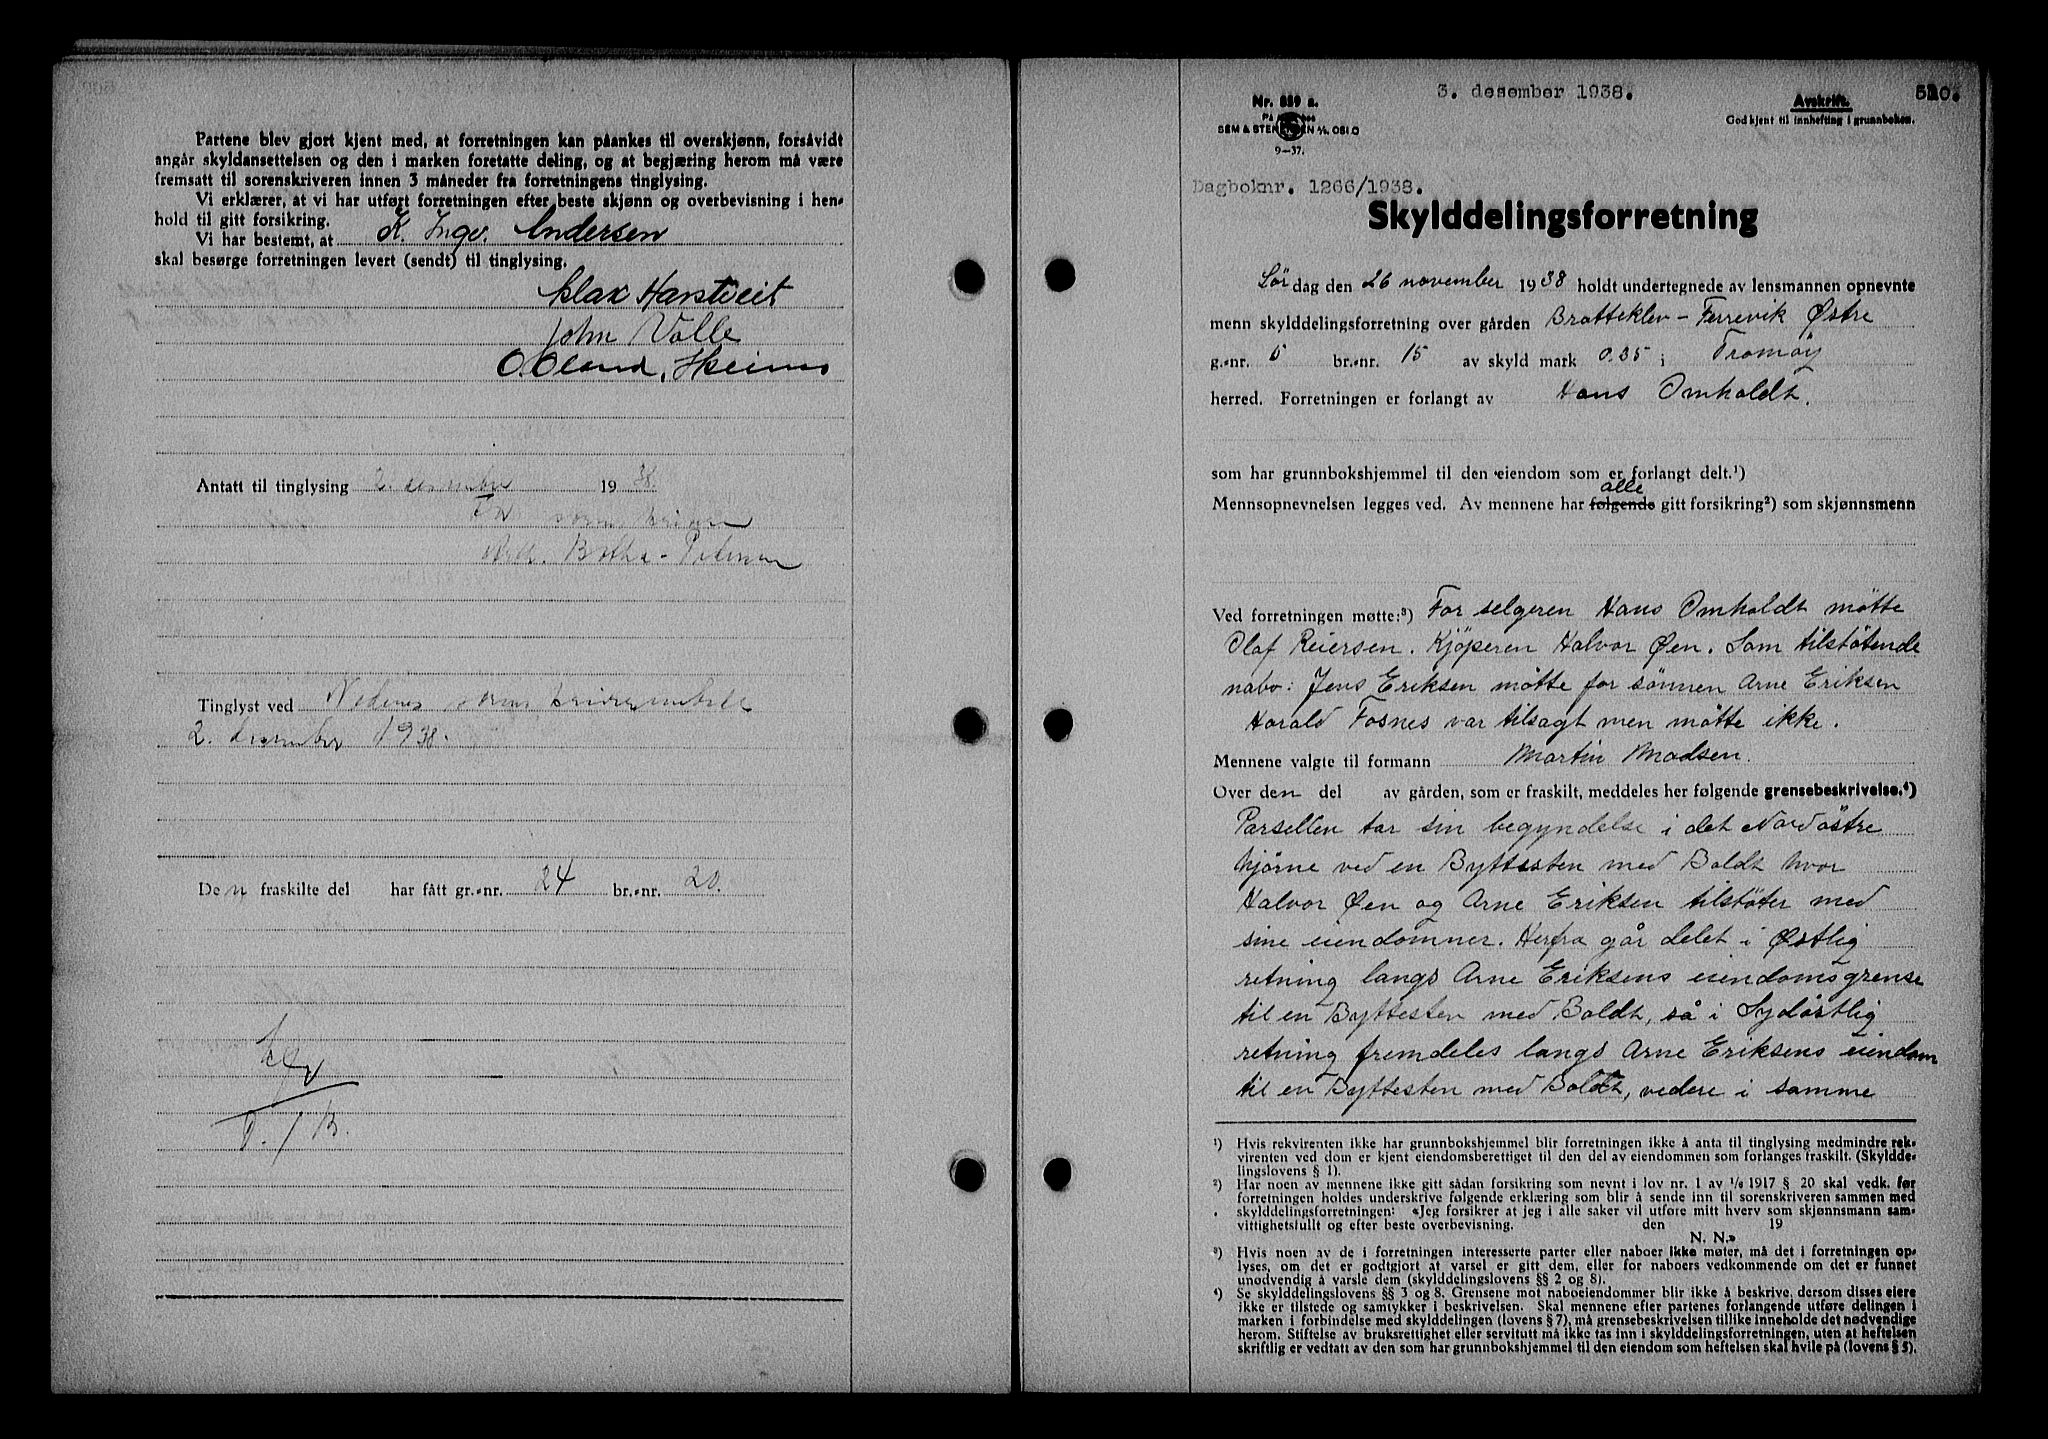 Partene blev gjort kjent med, at forretningen kan påankes til overskjønn, forsåvidt
angår skyldansettelsen og den i marken foretatte deling, og at begjæring herom må være
fremsatt til sorenskriveren innen 3 måneder fra forretningens tinglysing.
Vi erklærer, at vi har utført forretningen efter beste skjønn og overbevisning i hen-
hold til gitt forsikring.
Vi har bestemt, at K. Ingv. Andersen
skal besørge forretningen levert (sendt) til tinglysing.
Harstveit
John Valle
O. Oland,
Antatt til tinglysing 2. desember 1938.
Tinglyst ved Nedenes
2. desember 1938.
Den fraskilte del har fått gr.-nr. 24 br.-nr. 20.
3. desember 1938.
Nr. 889 a.
SEM & STENERSEN A/S, OSLO
9-37.
Avskrift.
Godkjent til innhefting i grunnboken.
Dagboknr. 1266/1938.
Skylddelingsforretning
Lör dag den 26 november 1938 holdt undertegnede av lensmannen opnevnte
menn skylddelingsforretning over gården Bratteklev - Ferrevik Østre
g.-nr. 5 br.-nr. 15 av skyld mark 0.35 i Tromöy
herred. Forretningen er forlangt av Hans Omholdt.
som har grunnbokshjemmel til den eiendom som er forlangt delt.¹)
alle
Mennsopnevnelsen legges ved. Av mennene har følgende gitt forsikring²) som skjønnsmenn
Ved forretningen møtte:³) For selgeren Hans Omholdt mötte
Olaf Reiersen. Kjöperen Halvor Øen. Som tilstötende
nabo: Jens Eriksen mötte for sönnen Arne Eriksen
Harald Fosnes var tilsagt men mötte ikke.
Mennene valgte til formann Martin Madsen.
Over den del av gården, som er fraskilt, meddeles her følgende grensebeskrivelse.⁴)
Parsellen tar sin begyndelse i det Nordöstre
hjörne ved en Byttesten med Boldt hvor
Halvor Øen og Arne Eriksen tilstöter med
sine eiendomner. Herfra går delet i Østlig
retning langs Arne Eriksens eiendomsgrense
til en Byttesten med Boldt, så i Sydöstlig
retning fremdeles langs Arne Eriksens eiendom
til en Byttesten med Boldt, videre i samme
¹) Hvis rekvirenten ikke har grunnbokshjemmel blir forretningen ikke å anta til tinglysing medmindre rek-
virenten ved dom er kjent eiendomsberettiget til den del av eiendommen som forlanges fraskilt. (Skyldde-
lingslovens § 1).
²) Har noen av mennene ikke gitt sådan forsikring som nevnt i lov nr. 1 av 1/6 1917 § 20 skal vedk. før
forretningen holdes underskrive følgende erklæring som blir å sende inn til sorenskriveren sammen med
skylddelingsforretningen: «Jeg forsikrer at jeg i alle saker vil utføre mitt hverv som skjønnsmann sam-
vittighetsfullt og efter beste overbevisning. den 19
N. N.»
³) Hvis noen av de i forretningen interesserte parter eller naboer ikke møter, må det i forretningen op-
lyses, om det er godtgjort at varsel er gitt dem, eller for naboers vedkommende om det er funnet
unødvendig å varsle dem (skylddelingslovens §§ 2 og 8).
⁴) Se skylddelingslovens §§ 3 og 8. Grensene mot naboeiendommer blir ikke å beskrive, dersom disses eiere
ikke er tilstede og samtykker i beskrivelsen. Skal mennene efter partenes forlangende utføre delingen i
marken i forbindelse med skylddelingen (lovens § 7), må grensebeskrivelsen tillike inneholde det nødvendige
herom. Stiftelse av bruksrettighet eller servitutt må ikke tas inn i skylddelingsforretningen, uten at heftelsen
skriftlig er vedtatt av den som har grunnbokshjemmel til den eiendom som heftelsen skal hvile på (lovens § 5).